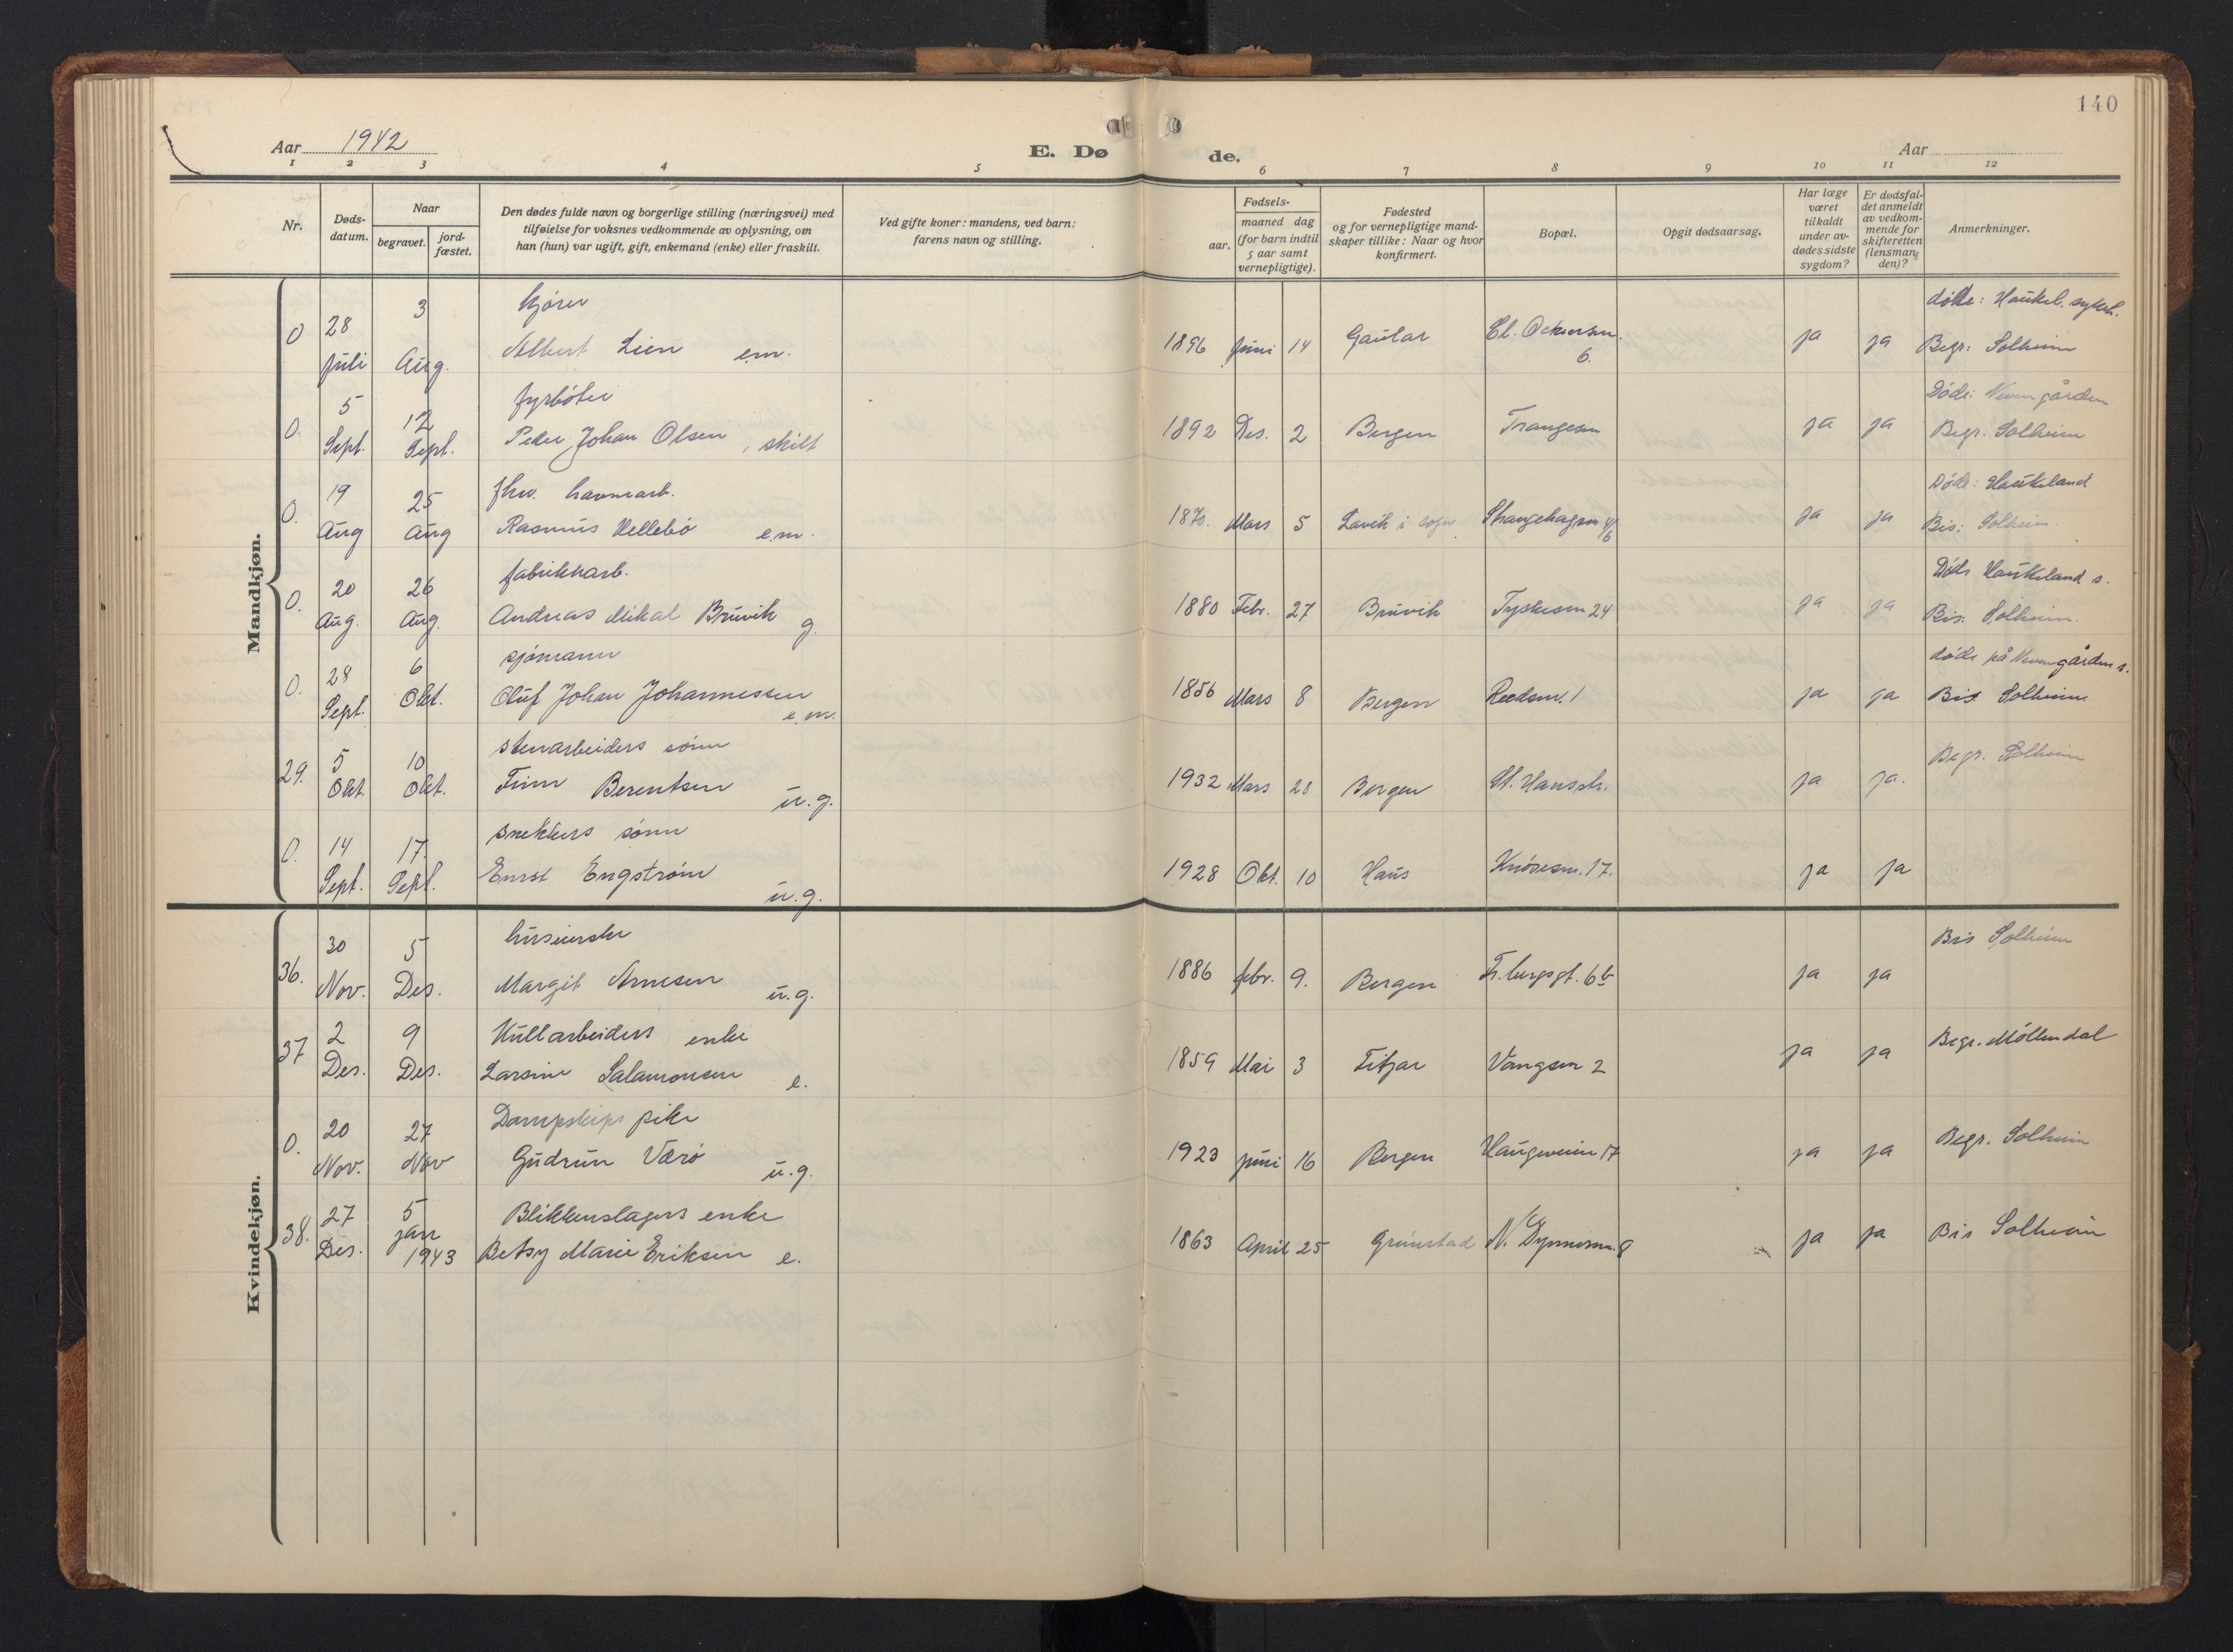 140
Aar 1942
E. Døde.
Aar
1 2 3 4 5 6 7 8 9 10 11 12
Nr.
Døds-datum.
Naar
begravet.
jord-fæstet.
Den dødes fulde navn og borgerlige stilling (næringsvei) med
tilføielse for voksnes vedkommende av oplysning, om
han (hun) var ugift, gift, enkemand (enke) eller fraskilt.
Ved gifte koner: mandens, ved barn:
farens navn og stilling.
Fødsels-
aar.
maaned dag
(for barn indtil
5 aar samt
vernepligtige).
Fødested
og for vernepligtige mand-
skaper tillike: Naar og hvor
konfirmert.
Bopæl.
Opgit dødsaarsag.
Har læge
været
tilkaldt
under av-
dødes sidste
sygdom?
Er dødsfal-
det anmeldt
av vedkom-
mende for
skifteretten
(lensman-
den)?
Anmerkninger.
Mandkjøn.
0 28 Juli 3 Aug. kjører
Albert Lien em. 1896 Juni 14 Gaular 6. ja ja døde: Haukel. sykeh.
Begr: Solheim
0. 5 Sept. 12 Sept. fyrbøter
Peder Johan Olsen, skilt 1892 Des. 2 Bergen Trangesm ja ja Døde: Nevengården
Begr. Solheim
0. 19 Aug 25 Aug fhv. havnearb.
Rasmus Hellebø e.m. 1870. Mars 5 Lavik i sogn Strangehagen 4/6 ja ja Døde: Haukeland
Bis: Solheim.
0. 20 Aug. 26 Aug. fabrikkarb.
Andreas Mikal Bruvik g. 1880 Febr. 27 Bruvik Tyskesm 24 ja ja Døde Haukeland s.
Bis. Solheim.
0. 28 Sept. 6 Okt. sjømann
Oluf Johan Johannessen e.m. 1856 Mars 8 Bergen Reedsm. 1 ja ja døde på Nevengården s.
Bis. Solheim
29. 5 Okt. 10 Okt. stenarbeiders sønn
Finn Berentsen u.g. 1932 Mars 28 Bergen St. Hansstr. ja ja. Begr. Solheim
0. 14 Sept. 17. Sept. snekkers sønn
Ernst Engstrøm u.g. 1928 Okt. 10 Haus Knøsesm. 17. ja ja
Kvindekjøn.
36. 30 Nov. 5 Des. huseierske
Margit Arnesen u.g. 1886 febr. 9. Bergen 6b ja ja Bis Solheim
37 2 Des. 9 Des. Kullarbeiders enke
Larsine Salamonsen e. 1859 Mai 3 Fitjar Vangsm 2 ja ja Begr. Møllendal
0. 20 Nov. 27 Nov Dampskips pike
Gudrun Værø u.g. 1923 juni 16 Bergen Haugeveien 17 ja ja Begr. Solheim
38. 27 Des. 5 jan 1943 Blikkenslagers enke
Betsy Marie Eriksen e. 1863 April 25 Grimstad N. Dynnersm. 8 ja ja Bis Solheim